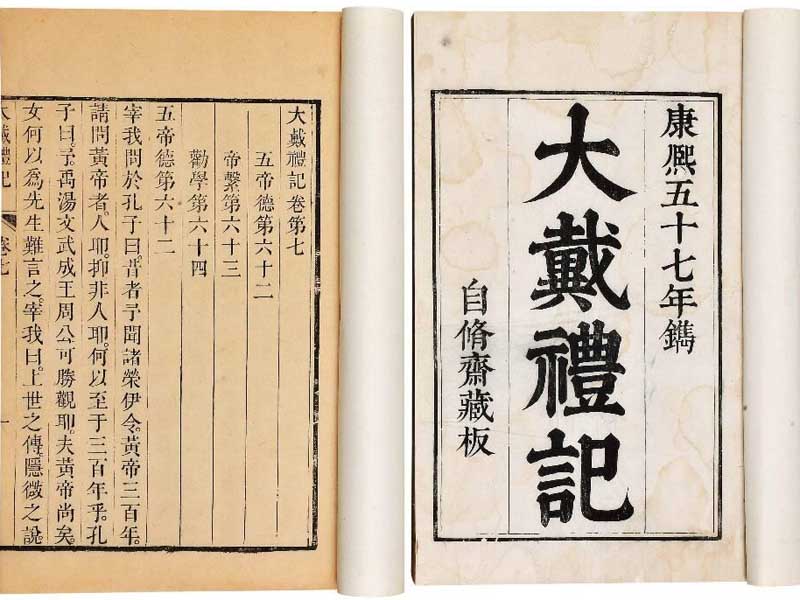 康熙五十七年鐫
大戴禮記
自脩齋藏板
大戴禮記卷第七
五帝德第六十二
帝繫第六十三
勸學第六十四
五帝德第六十二
宰我問於孔子曰。昔者予聞諸榮伊令。黃帝三百年。
請問黃帝者。人耶。抑非人耶。何以至于三百年乎。孔
子曰。予。禹湯文武成王周公可勝觀耶。夫黃帝尚矣。
女何以爲先生難言之。宰我曰。上世之傳。隱微之說。
大戴禮記 卷七 一